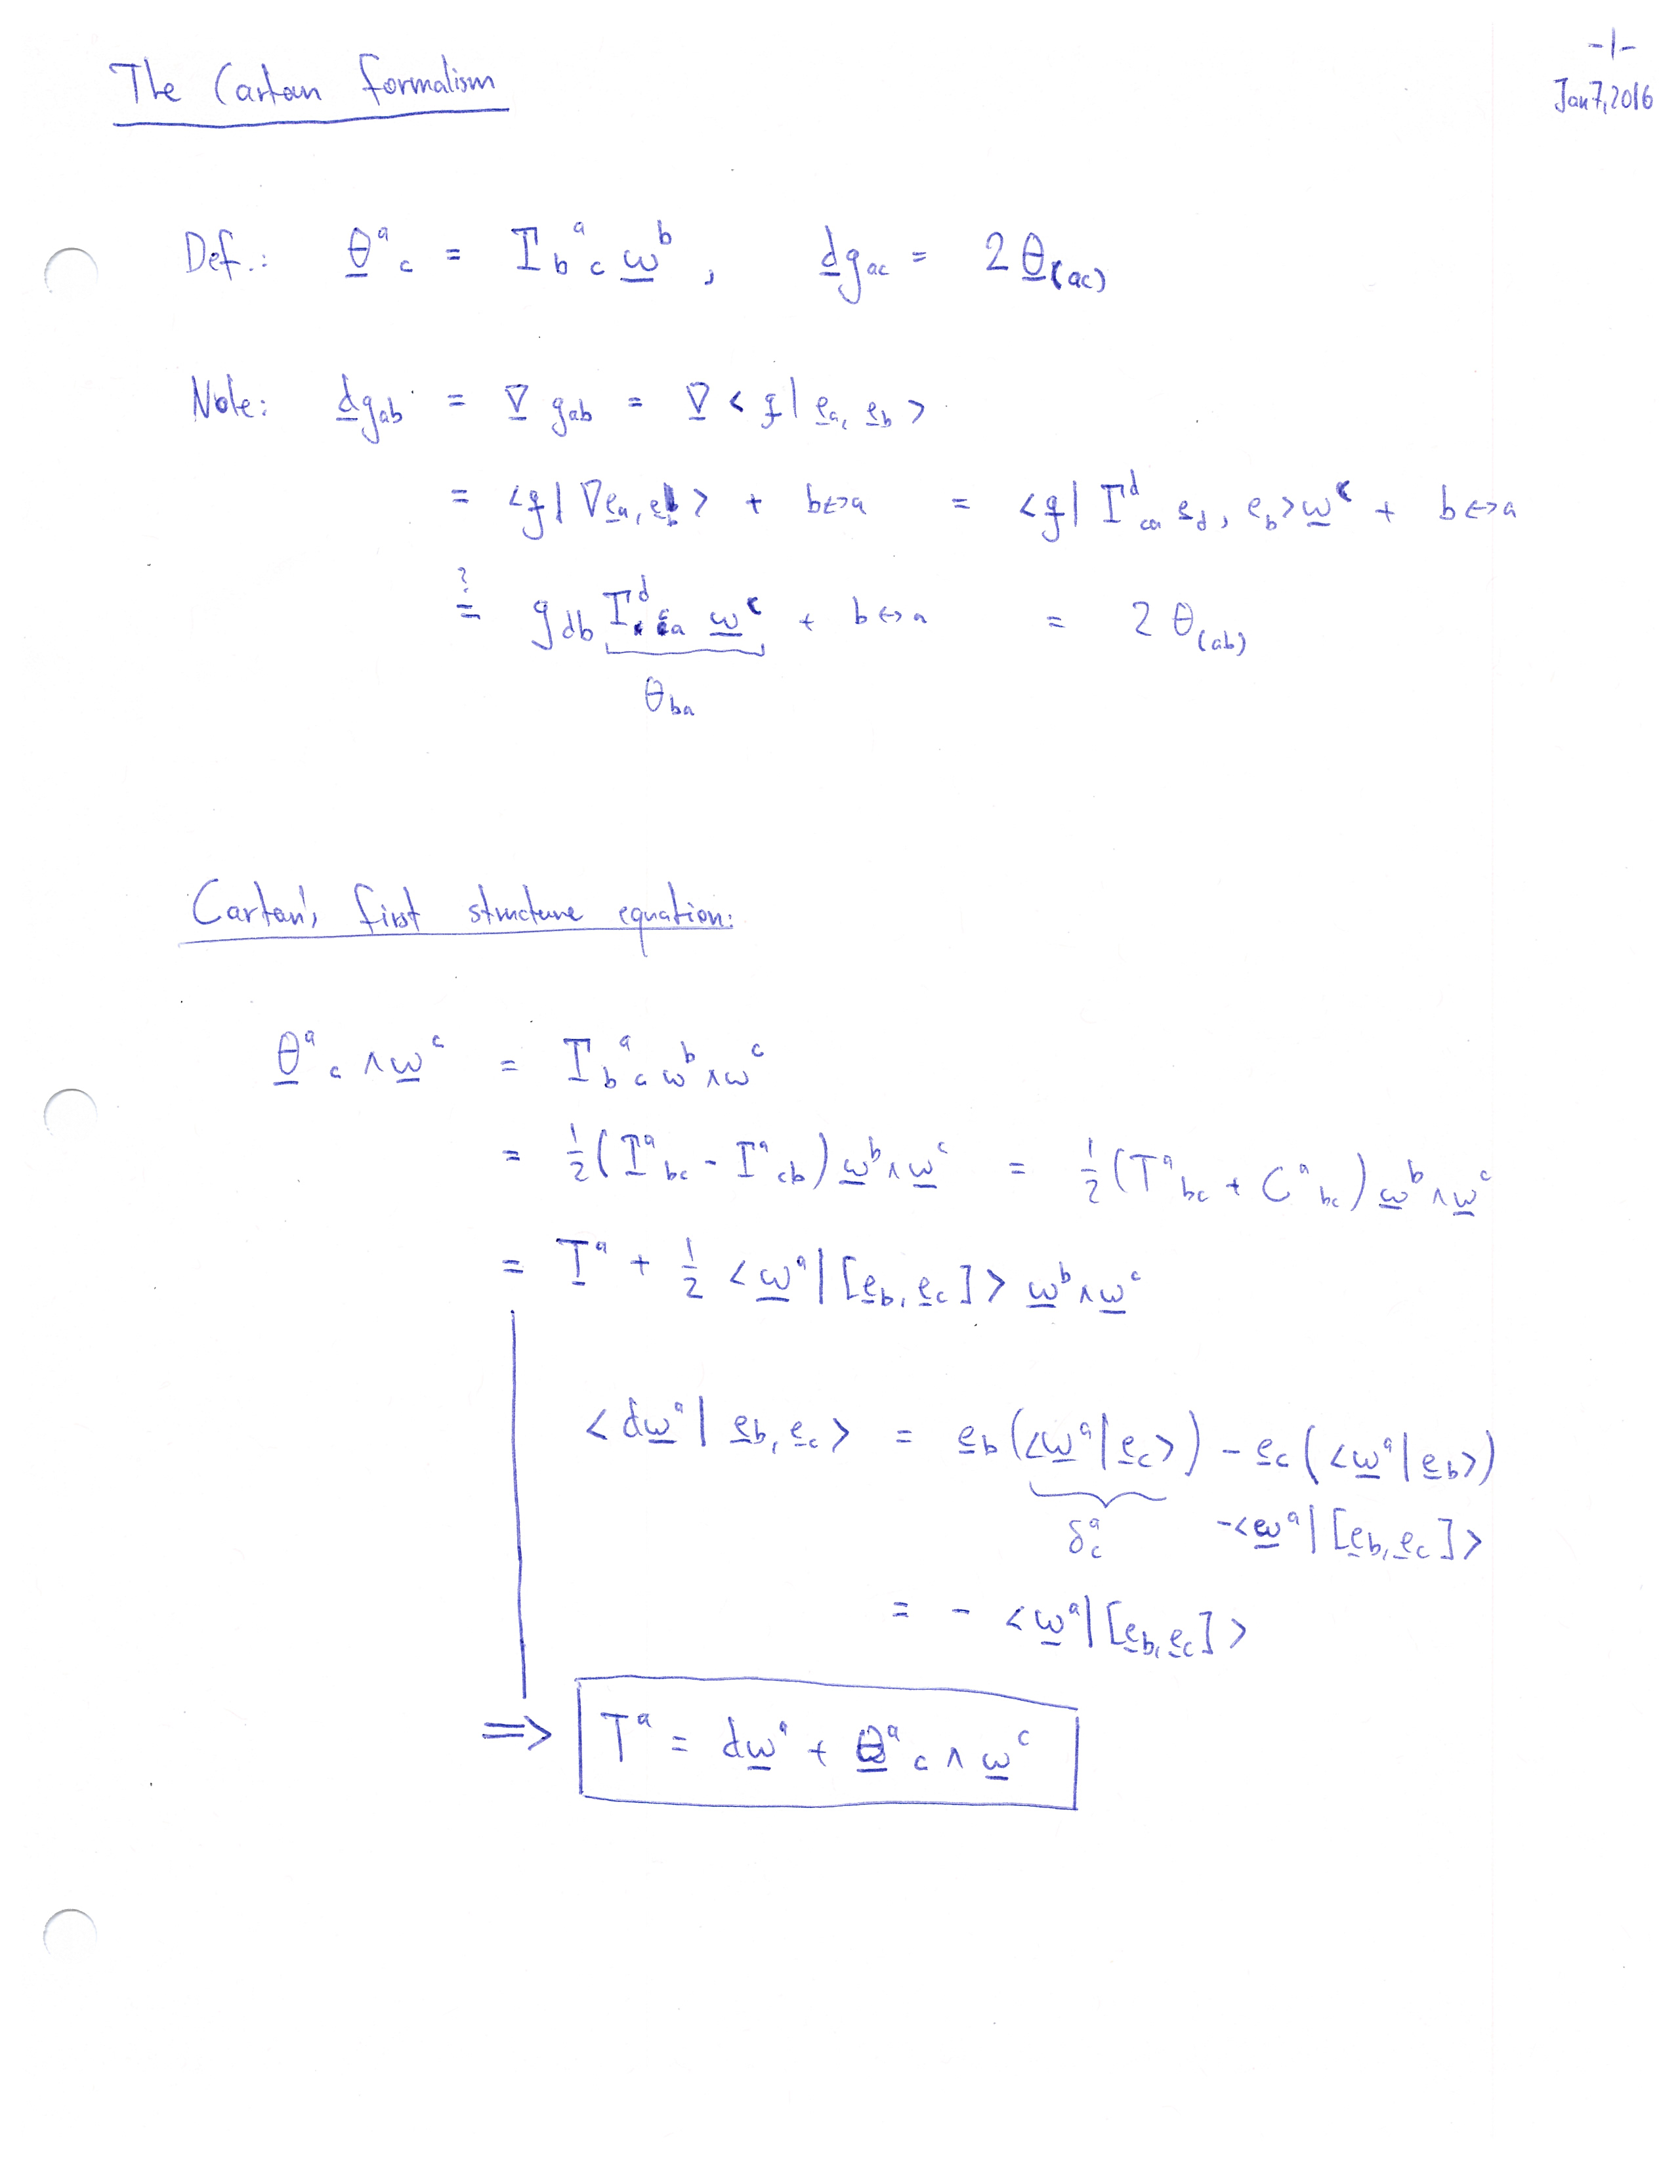 -1-
The Cartan formalism
Jan 7, 2016
Def.: θ̲^a_c = Γ_b^a_c ω̲^b , d̲g_ac = 2 θ̲_(ac)
Note: d̲g_ab = ∇̲ g_ab = ∇̲ <g| e̲_a, e̲_b >
= <g| ∇e̲_a, e_b > + b↔a = <g| Γ^d_ca e̲_d, e_b> ω̲^c + b↔a
?= g_db Γ^d_ca ω̲^c + b↔a = 2 θ_(ab)
θ_ba
Cartan's first structure equation:
θ̲^a_c ∧ ω̲^c = Γ_b^a_c ω^b ∧ ω^c
= 1/2 (Γ^a_bc - Γ^a_cb) ω̲^b ∧ ω̲^c = 1/2 (T^a_bc + C^a_bc) ω̲^b ∧ ω̲^c
= T̲^a + 1/2 <ω̲^a| [e̲_b, e̲_c] > ω̲^b ∧ ω̲^c
<dω̲^a| e̲_b, e̲_c > = e̲_b (<ω̲^a| e̲_c>) - e̲_c (<ω̲^a| e̲_b>)
δ^a_c -<ω̲^a| [e̲_b, e̲_c] >
= - <ω̲^a| [e̲_b, e̲_c] >
⟹ T^a = dω̲^a + θ̲^a_c ∧ ω̲^c